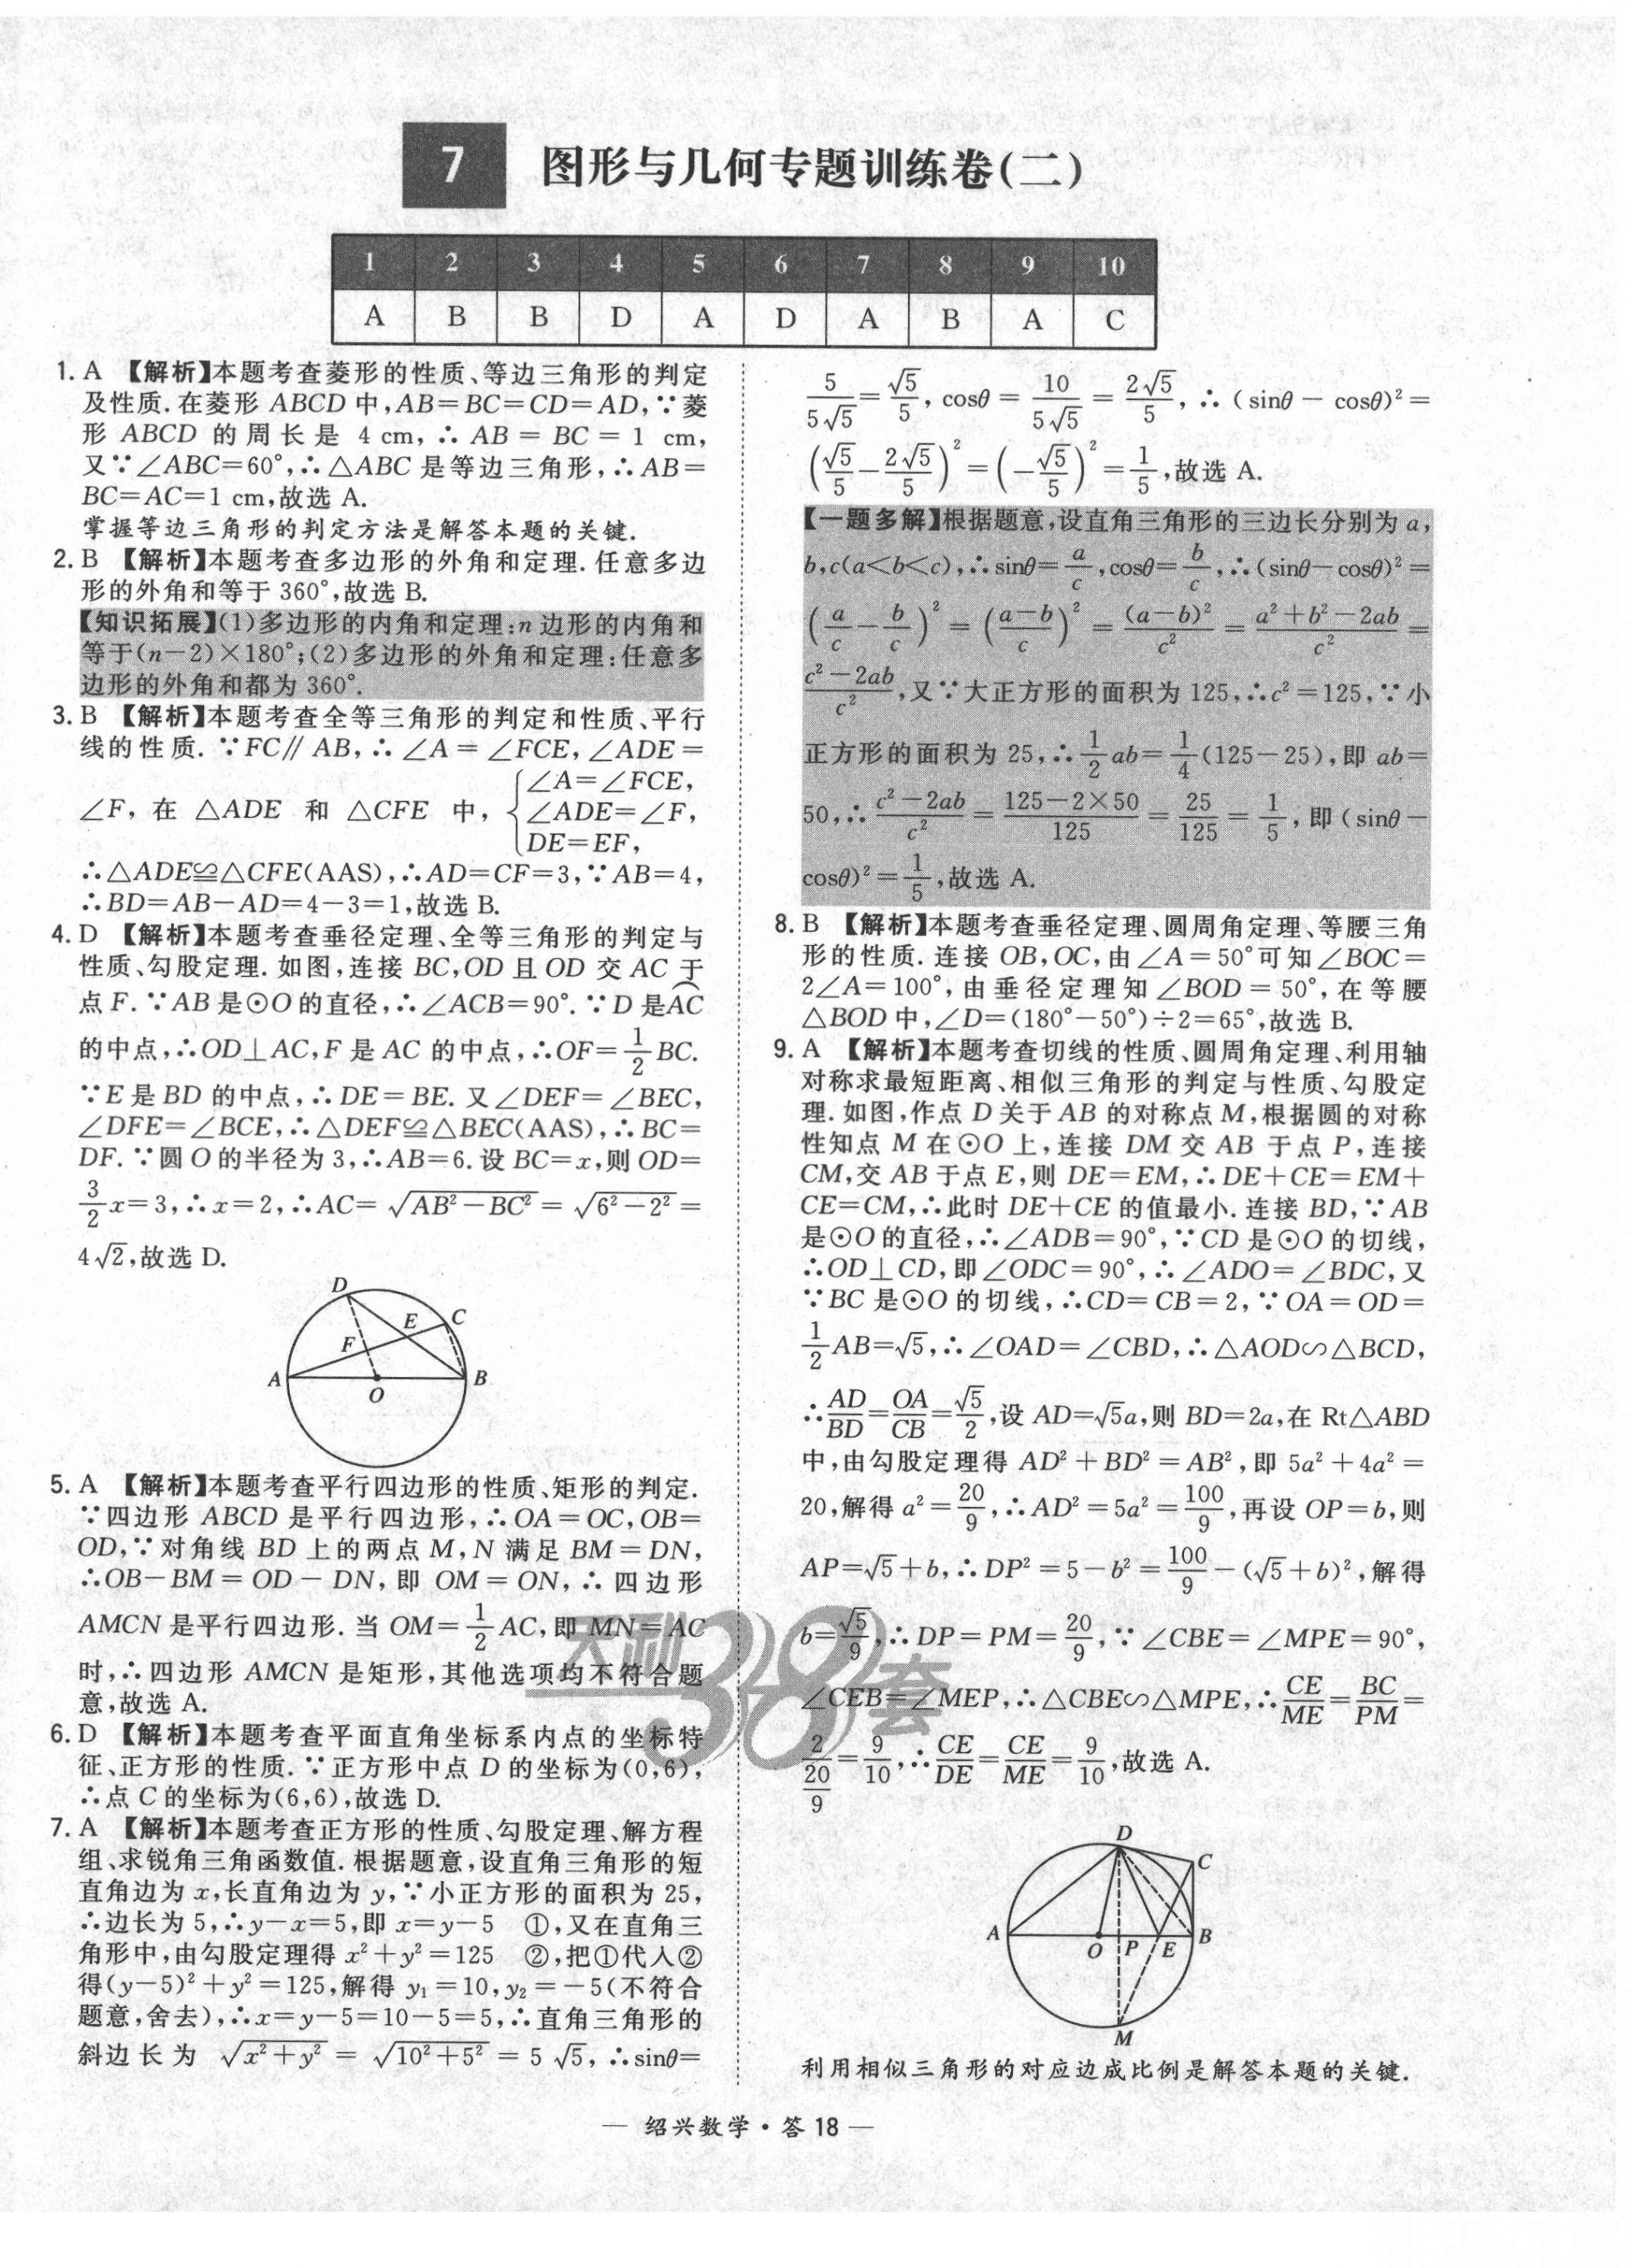 7 图形与几何专题训练卷(二)
1 2 3 4 5 6 7 8 9 10
A B B D A D A B A C
1. A 【解析】本题考查菱形的性质、等边三角形的判定
及性质.在菱形 ABCD 中,AB=BC=CD=AD,∵菱
形 ABCD 的周长是 4 cm,∴AB=BC=1 cm,
又∵∠ABC=60°,∴△ABC 是等边三角形,∴AB=
BC=AC=1 cm,故选 A.
掌握等边三角形的判定方法是解答本题的关键.
2. B 【解析】本题考查多边形的外角和定理.任意多边
形的外角和等于 360°,故选 B.
【知识拓展】(1)多边形的内角和定理:n 边形的内角和
等于(n-2)×180°;(2)多边形的外角和定理:任意多
边形的外角和都为 360°.
3. B 【解析】本题考查全等三角形的判定和性质、平行
线的性质.∵FC∥AB,∴∠A=∠FCE,∠ADE=
∠F,在 △ADE 和 △CFE 中,{∠A=∠FCE,
∠ADE=∠F,
DE=EF,
∴△ADE≌△CFE(AAS),∴AD=CF=3,∵AB=4,
∴BD=AB-AD=4-3=1,故选 B.
4. D 【解析】本题考查垂径定理、全等三角形的判定与
性质、勾股定理.如图,连接 BC,OD 且 OD 交 AC 于
点 F.∵AB 是⊙O 的直径,∴∠ACB=90°.∵D 是⌒AC
的中点,∴OD⊥AC,F 是 AC 的中点,∴OF=1/2 BC.
∵E 是 BD 的中点,∴DE=BE.又∠DEF=∠BEC,
∠DFE=∠BCE,∴△DEF≌△BEC(AAS),∴BC=
DF.∵圆 O 的半径为 3,∴AB=6.设 BC=x,则 OD=
3/2 x=3,∴x=2,∴AC=√(AB²-BC²)=√(6²-2²)=
4√2,故选 D.
D
E
C
F
A
O
B
5. A 【解析】本题考查平行四边形的性质、矩形的判定.
∵四边形 ABCD 是平行四边形,∴OA=OC,OB=
OD,∵对角线 BD 上的两点 M,N 满足 BM=DN,
∴OB-BM=OD-DN,即 OM=ON,∴四边形
AMCN 是平行四边形.当 OM=1/2 AC,即 MN=AC
时,∴四边形 AMCN 是矩形,其他选项均不符合题
意,故选 A.
6. D 【解析】本题考查平面直角坐标系内点的坐标特
征、正方形的性质.∵正方形中点 D 的坐标为(0,6),
∴点 C 的坐标为(6,6),故选 D.
7. A 【解析】本题考查正方形的性质、勾股定理、解方程
组、求锐角三角函数值.根据题意,设直角三角形的短
直角边为 x,长直角边为 y,∵小正方形的面积为 25,
∴边长为 5,∴y-x=5,即 x=y-5 ①,又在直角三
角形中,由勾股定理得 x²+y²=125 ②,把①代入②
得(y-5)²+y²=125,解得 y₁=10,y₂=-5(不符合
题意,舍去),∴x=y-5=10-5=5,∴直角三角形的
斜边长为 √(x²+y²)=√(10²+5²)=5√5,∴sinθ=
5/(5√5)=√5/5,cosθ=10/(5√5)=2√5/5,∴(sinθ-cosθ)²=
(√5/5-2√5/5)²=(-√5/5)²=1/5,故选 A.
【一题多解】根据题意,设直角三角形的三边长分别为 a,
b,c(a<b<c),∴sinθ=a/c,cosθ=b/c,∴(sinθ-cosθ)²=
(a/c-b/c)²=((a-b)/c)²=(a-b)²/c²=(a²+b²-2ab)/c²=
(c²-2ab)/c²,又∵大正方形的面积为 125,∴c²=125,∵小
正方形的面积为 25,∴1/2 ab=1/4(125-25),即 ab=
50,∴(c²-2ab)/c²=(125-2×50)/125=25/125=1/5,即(sinθ-
cosθ)²=1/5,故选 A.
8. B 【解析】本题考查垂径定理、圆周角定理、等腰三角
形的性质.连接 OB,OC,由∠A=50°可知∠BOC=
2∠A=100°,由垂径定理知∠BOD=50°,在等腰
△BOD 中,∠D=(180°-50°)÷2=65°,故选 B.
9. A 【解析】本题考查切线的性质、圆周角定理、利用轴
对称求最短距离、相似三角形的判定与性质、勾股定
理.如图,作点 D 关于 AB 的对称点 M,根据圆的对称
性知点 M 在⊙O 上,连接 DM 交 AB 于点 P,连接
CM,交 AB 于点 E,则 DE=EM,∴DE+CE=EM+
CE=CM,∴此时 DE+CE 的值最小.连接 BD,∵AB
是⊙O 的直径,∴∠ADB=90°,∵CD 是⊙O 的切线,
∴OD⊥CD,即∠ODC=90°,∴∠ADO=∠BDC,又
∵BC 是⊙O 的切线,∴CD=CB=2,∵OA=OD=
1/2 AB=√5,∴∠OAD=∠CBD,∴△AOD∽△BCD,
∴AD/BD=OA/CB=√5/2,设 AD=√5a,则 BD=2a,在 Rt△ABD
中,由勾股定理得 AD²+BD²=AB²,即 5a²+4a²=
20,解得 a²=20/9,∴AD²=5a²=100/9,再设 OP=b,则
AP=√5+b,∴DP²=5-b²=100/9-(√5+b)²,解得
b=√5/9,∴DP=PM=20/9,∵∠CBE=∠MPE=90°,
∠CEB=∠MEP,∴△CBE∽△MPE,∴CE/ME=BC/PM=
2/(20/9)=9/10,∴CE/DE=CE/ME=9/10,故选 A.
D
C
A
O P E B
M
利用相似三角形的对应边成比例是解答本题的关键.
天利38套
— 绍兴数学·答 18 —